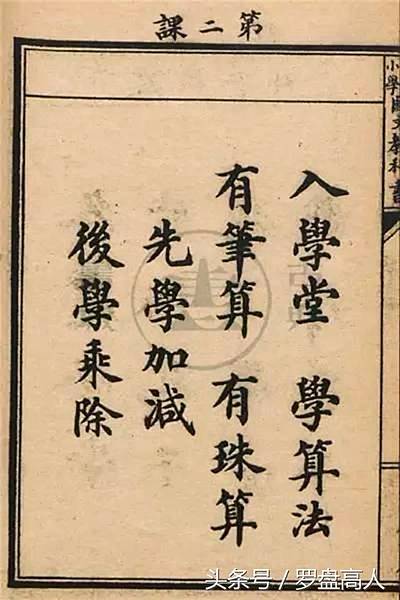 第二課
小學國文教科書
入學堂 學算法
有筆算 有珠算
先學加減
後學乘除
头条号 / 罗盘高人